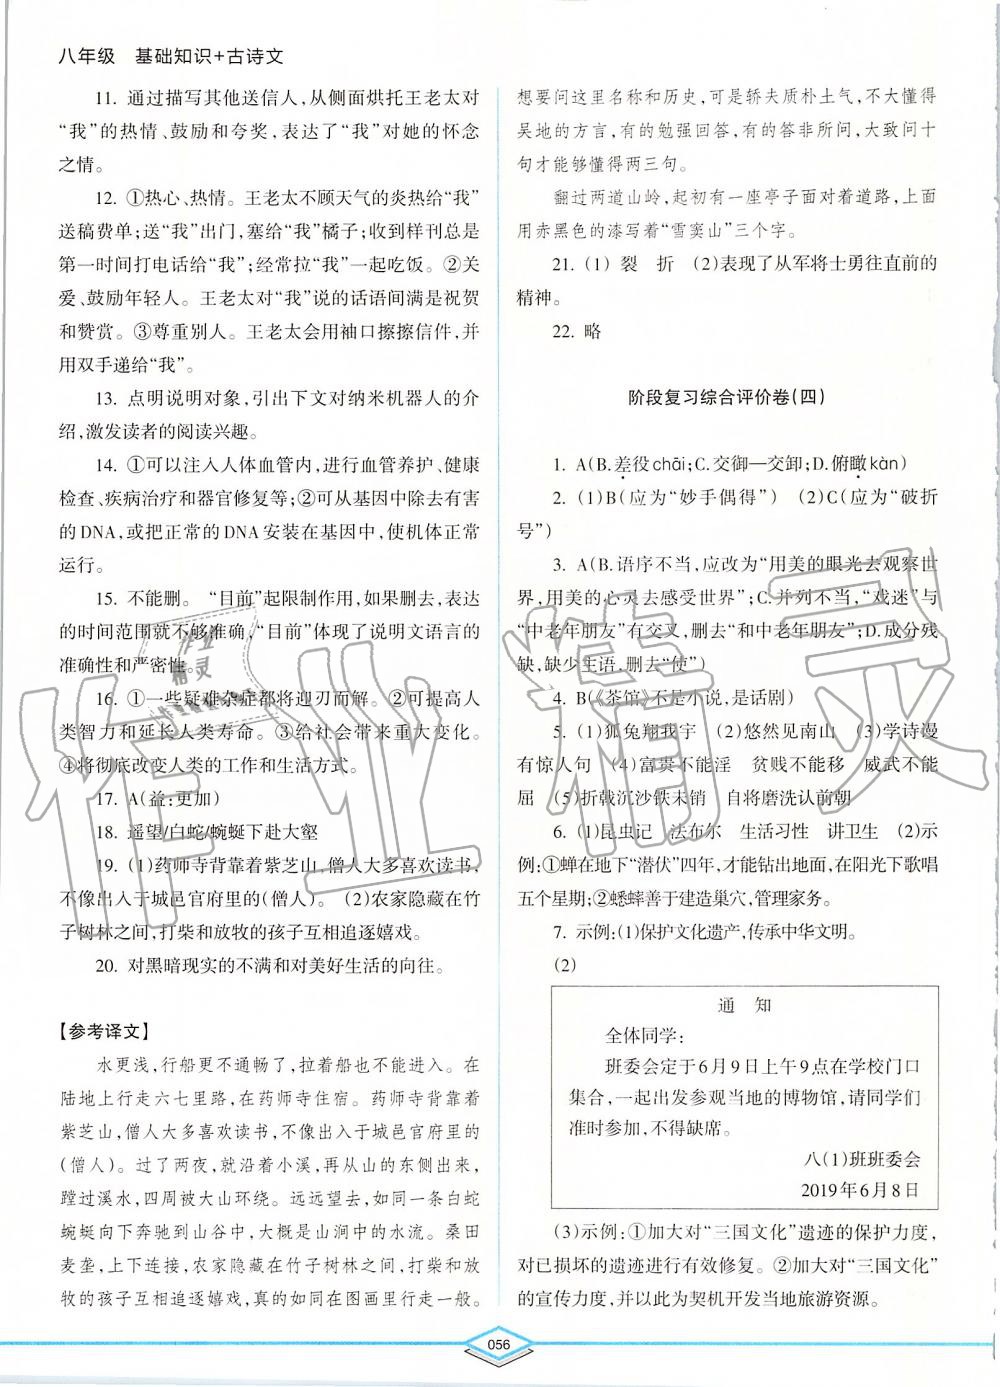 八年级 基础知识+古诗文
11. 通过描写其他送信人,从侧面烘托王老太对
“我”的热情、鼓励和夸奖,表达了“我”对她的怀念
之情。
12. ①热心、热情。王老太不顾天气的炎热给“我”
送稿费单;送“我”出门,塞给“我”橘子;收到样刊总是
第一时间打电话给“我”;经常拉“我”一起吃饭。②关
爱、鼓励年轻人。王老太对“我”说的话语间满是祝贺
和赞赏。③尊重别人。王老太会用袖口擦擦信件,并
用双手递给“我”。
13. 点明说明对象,引出下文对纳米机器人的介
绍,激发读者的阅读兴趣。
14. ①可以注入人体血管内,进行血管养护、健康
检查、疾病治疗和器官修复等;②可从基因中除去有害
的DNA,或把正常的DNA安装在基因中,使机体正常
运行。
15. 不能删。“目前”起限制作用,如果删去,表达
的时间范围就不够准确,“目前”体现了说明文语言的
准确性和严密性。
16. ①一些疑难杂症都将迎刃而解。②可提高人
类智力和延长人类寿命。③给社会带来重大变化。
④将彻底改变人类的工作和生活方式。
17. A(益:更加)
18. 遥望/白蛇/蜿蜒下赴大壑
19. (1)药师寺背靠着紫芝山,僧人大多喜欢读书,
不像出入于城邑官府里的(僧人)。 (2)农家隐藏在竹
子树林之间,打柴和放牧的孩子互相追逐嬉戏。
20. 对黑暗现实的不满和对美好生活的向往。
【参考译文】
水更浅,行船更不通畅了,拉着船也不能进入。在
陆地上行走六七里路,在药师寺住宿。药师寺背靠着
紫芝山,僧人大多喜欢读书,不像出入于城邑官府里的
(僧人)。过了两夜,就沿着小溪,再从山的东侧出来,
蹚过溪水,四周被大山环绕。远远望去,如同一条白蛇
蜿蜒向下奔驰到山谷中,大概是山涧中的水流。桑田
麦垄,上下连接,农家隐藏在竹子树林之间,打柴和放
牧的孩子互相追逐嬉戏,真的如同在图画里行走一般。
想要问这里名称和历史,可是轿夫质朴土气,不大懂得
吴地的方言,有的勉强回答,有的答非所问,大致问十
句才能够懂得两三句。
翻过两道山岭,起初有一座亭子面对着道路,上面
用赤黑色的漆写着“雪窦山”三个字。
21. (1) 裂 折 (2)表现了从军将士勇往直前的
精神。
22. 略
阶段复习综合评价卷(四)
1. A(B.差役chāi;C.交御—交卸;D.俯瞰kàn)
2. (1)B(应为“妙手偶得”) (2)C(应为“破折
号”)
3. A(B.语序不当,应改为“用美的眼光去观察世
界,用美的心灵去感受世界”;C.并列不当,“戏迷”与
“中老年朋友”有交叉,删去“和中老年朋友”;D.成分残
缺,缺少主语,删去“使”)
4. B(《茶馆》不是小说,是话剧)
5. (1)狐兔翔我宇 (2)悠然见南山 (3)学诗漫
有惊人句 (4)富贵不能淫 贫贱不能移 威武不能
屈 (5)折戟沉沙铁未销 自将磨洗认前朝
6. (1)昆虫记 法布尔 生活习性 讲卫生 (2)示
例:①蝉在地下“潜伏”四年,才能钻出地面,在阳光下歌唱
五个星期;②蟋蟀善于建造巢穴,管理家务。
7. 示例:(1)保护文化遗产,传承中华文明。
(2)
通 知
全体同学:
班委会定于6月9日上午9点在学校门口
集合,一起出发参观当地的博物馆,请同学们
准时参加,不得缺席。
八(1)班班委会
2019年6月8日
(3)示例:①加大对“三国文化”遗迹的保护力度,
对已损坏的遗迹进行有效修复。②加大对“三国文化”
的宣传力度,并以此为契机开发当地旅游资源。
056
作业精灵